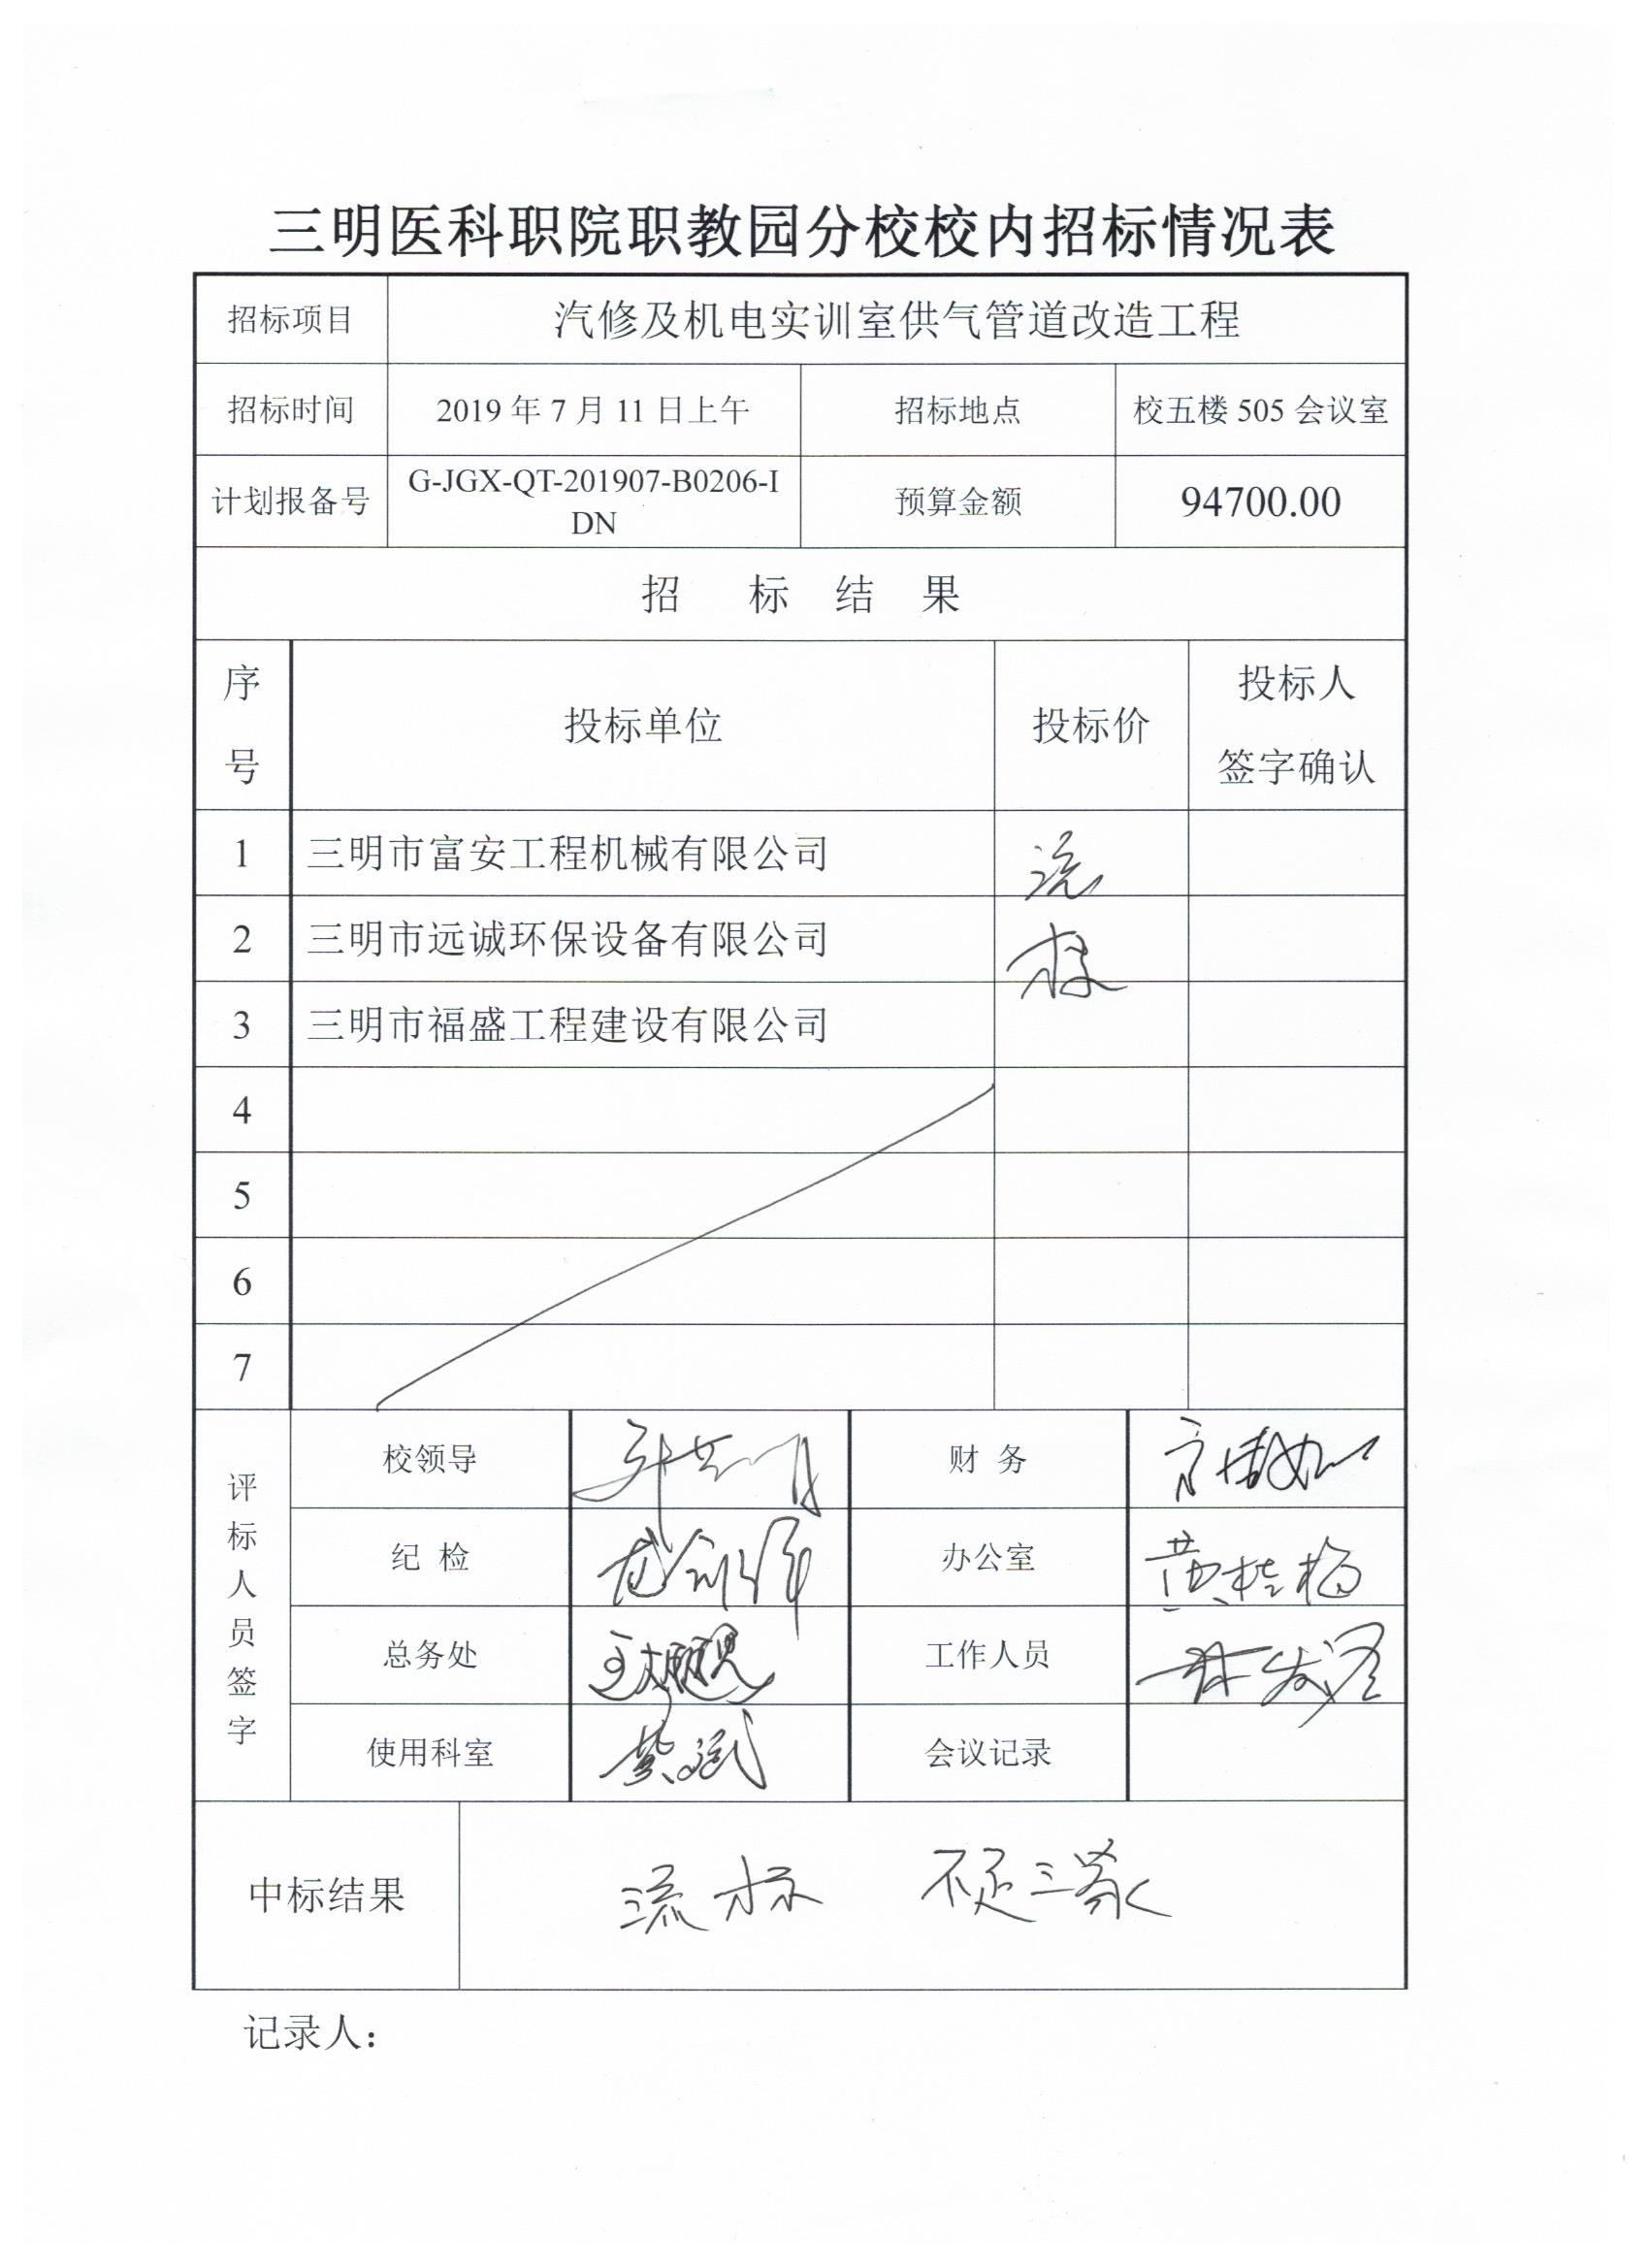 三明医科职院职教园分校校内招标情况表
招标项目 汽修及机电实训室供气管道改造工程
招标时间 2019 年 7 月 11 日上午 招标地点 校五楼 505 会议室
计划报备号 G-JGX-QT-201907-B0206-I
DN 预算金额 94700.00
招 标 结 果
序号 投标单位 投标价 投标人
签字确认
1 三明市富安工程机械有限公司 流
2 三明市远诚环保设备有限公司 标
3 三明市福盛工程建设有限公司
4
5
6
7
评标人员签字
校领导 财 务
纪 检 办公室 黄桂梅
总务处 工作人员
使用科室 会议记录
中标结果 流标 不足三家
记录人：